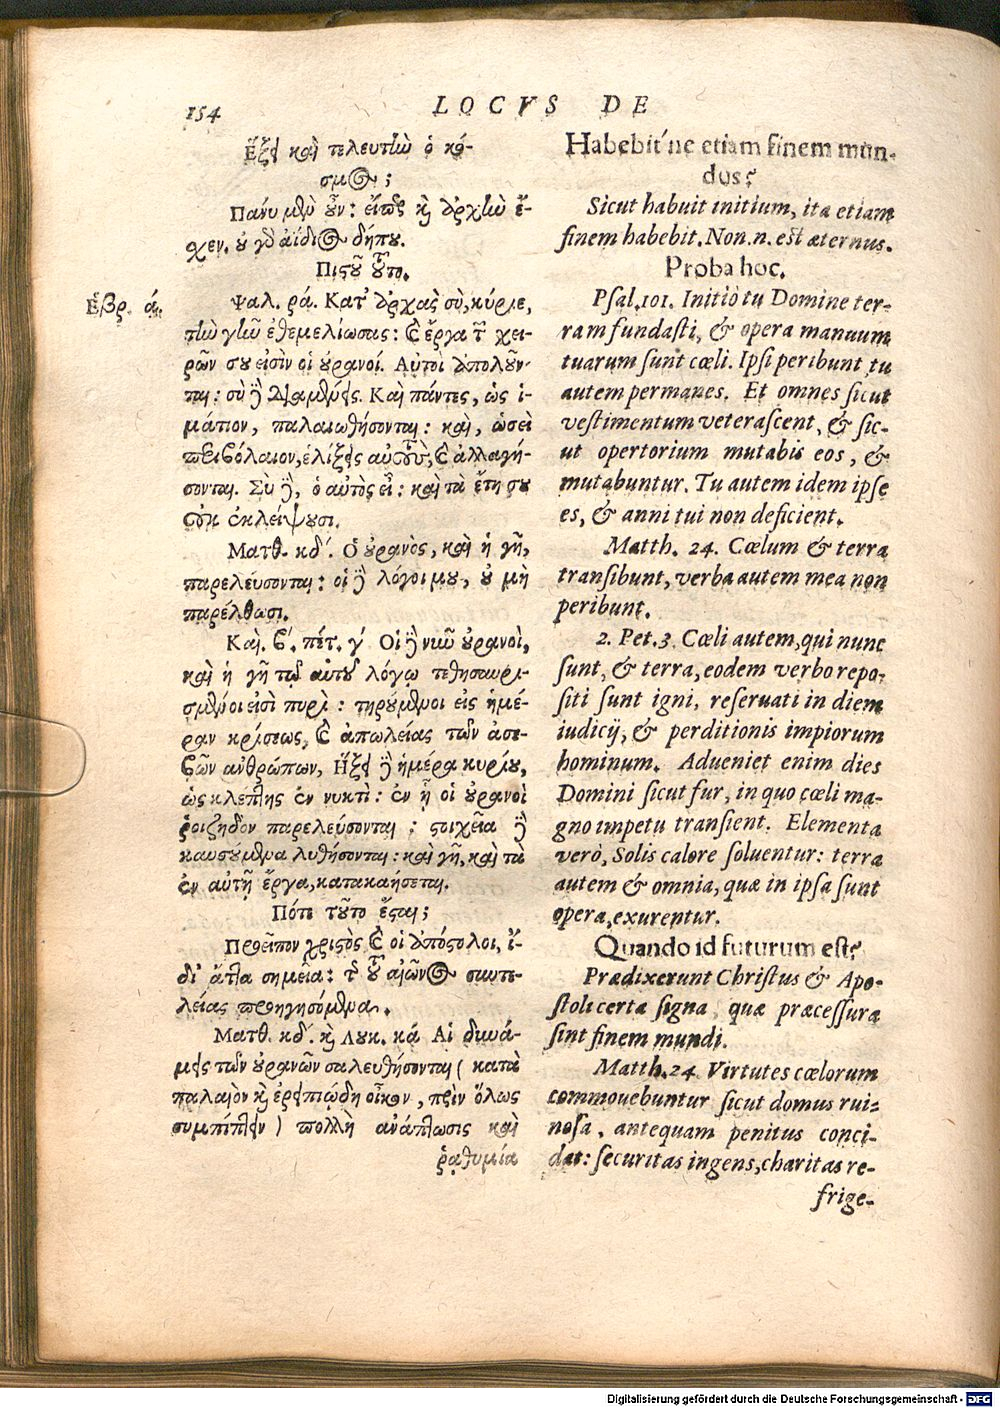 154
LOCVS DE
Ἕξει καὶ τελευτὴν ὁ κό-
σμος;
Πάνυ μὲν οὖν: εἴπερ καὶ ἀρχὴν ἔ-
χεν. οὐ γὰρ ἀΐδιος δήπου.
Πιστοῦ τοῦτο.
Ἑβρ. ά.
Ψαλ. ρά. Κατ' ἀρχὰς σὺ, κύριε,
τὴν γῆν ἐθεμελίωσας: καὶ ἔργα τῶν χει-
ρῶν σου εἰσὶν οἱ οὐρανοί. Αὐτοὶ ἀπολοῦν-
ται: σὺ δὲ διαμένεις. Καὶ πάντες, ὡς ἱ-
μάτιον, παλαιωθήσονται: καὶ, ὡσεὶ
περιβόλαιον, ἑλίξεις αὐτοὺς, καὶ ἀλλαγή-
σονται. Σὺ δὲ, ὁ αὐτὸς εἶ: καὶ τὰ ἔτη σου
οὐκ ἐκλείψουσι.
Ματθ. κδ'. Ὁ οὐρανὸς, καὶ ἡ γῆ,
παρελεύσονται: οἱ δὲ λόγοι μου, οὐ μὴ
παρέλθωσι.
Καὶ. β'. πέτ. γ' Οἱ δὲ νῦν οὐρανοὶ,
καὶ ἡ γῆ τῷ αὐτοῦ λόγῳ τεθησαυρι-
σμένοι εἰσὶ πυρὶ: τηρούμενοι εἰς ἡμέ-
ραν κρίσεως, καὶ ἀπωλείας τῶν ἀσε-
βῶν ἀνθρώπων, Ἥξει δὲ ἡμέρα κυρίου,
ὡς κλέπτης ἐν νυκτὶ: ἐν ᾗ οἱ οὐρανοὶ
ῥοιζηδὸν παρελεύσονται: στοιχεῖα δὲ
καυσούμενα λυθήσονται: καὶ γῆ, καὶ τὰ
ἐν αὐτῇ ἔργα, κατακαήσεται.
Πότε τοῦτο ἔσται;
Προεῖπον χριστὸς καὶ οἱ ἀπόστολοι, ἴ-
δι' ἄττα σημεῖα: τὴν τοῦ αἰῶνος συντε-
λείας προηγησόμενα.
Ματθ. κδ'. καὶ Λουκ. κά Αἱ δυνά-
μεις τῶν οὐρανῶν σαλευθήσονται (κατὰ
παλαιὸν καὶ ἐρειπιώδη οἶκον, πρὶν ὅλως
συμπίπτειν) πολλὴ ἀνάπτωσις καὶ
ῥαθυμία
Habebit'ne etiam finem mun-
dus?
Sicut habuit initium, ita etiam
finem habebit. Non.n. est æternus.
Proba hoc.
Psal.101. Initiò tu Domine ter-
ram fundasti, & opera manuum
tuarum sunt cœli. Ipsi peribunt tu
autem permanes. Et omnes sicut
vestimentum veterascent, & sic-
ut opertorium mutabis eos, &
mutabuntur. Tu autem idem ipse
es, & anni tui non deficient.
Matth. 24. Cœlum & terra
transibunt, verba autem mea non
peribunt.
2. Pet.3. Cœli autem, qui nunc
sunt, & terra, eodem verbo repo-
siti sunt igni, reseruati in diem
iudicij, & perditionis impiorum
hominum. Adueniet enim dies
Domini sicut fur, in quo cœli ma-
gno impetu transient. Elementa
verò, Solis calore soluentur: terra
autem & omnia, quæ in ipsa sunt
opera, exurentur.
Quando id futurum est?
Prædixerunt Christus & Apo-
stoli certa signa, quæ præcessura
sint finem mundi.
Matth.24. Virtutes cœlorum
commouebuntur sicut domus rui-
nosa, antequam penitus conci-
dat: securitas ingens, charitas re-
frige-
Digitalisierung gefördert durch die Deutsche Forschungsgemeinschaft - DFG